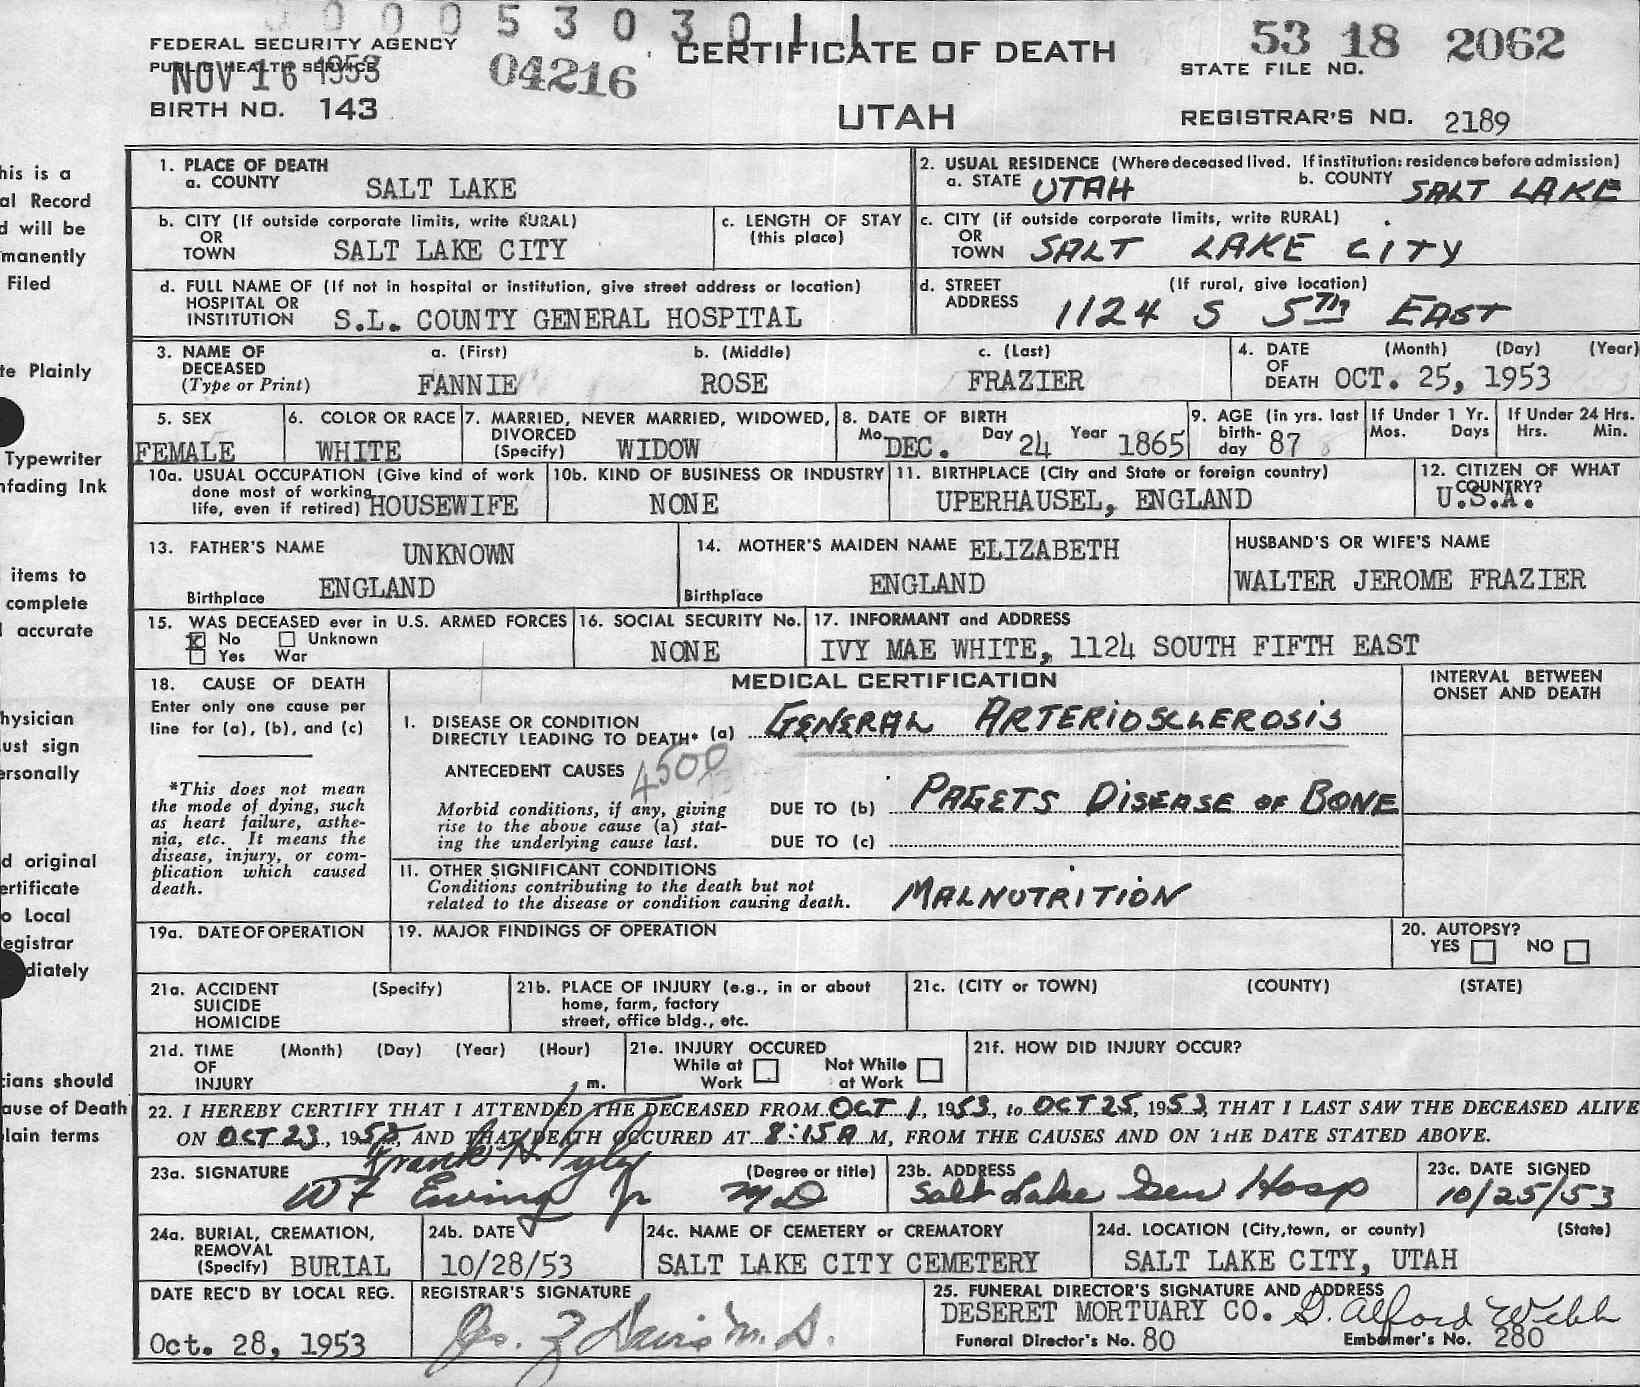 0 0 0 0 5 3 0 3 0 1 1
FEDERAL SECURITY AGENCY
PUBLIC HEALTH SERVICE
NOV 16 1953
04216
CERTIFICATE OF DEATH
53 18 2062
STATE FILE NO.
BIRTH NO. 143
UTAH
REGISTRAR'S NO. 2189
his is a
al Record
d will be
manently
Filed
te Plainly
Typewriter
nfading Ink
items to
complete
accurate
hysician
ust sign
ersonally
d original
ertificate
o Local
egistrar
diately
cians should
ause of Death
lain terms
1. PLACE OF DEATH
a. COUNTY SALT LAKE
2. USUAL RESIDENCE (Where deceased lived. If institution: residence before admission)
a. STATE UTAH b. COUNTY SALT LAKE
b. CITY (If outside corporate limits, write RURAL)
OR
TOWN SALT LAKE CITY
c. LENGTH OF STAY
(this place)
c. CITY (if outside corporate limits, write RURAL)
OR
TOWN SALT LAKE CITY
d. FULL NAME OF (If not in hospital or institution, give street address or location)
HOSPITAL OR
INSTITUTION S.L. COUNTY GENERAL HOSPITAL
d. STREET (If rural, give location)
ADDRESS 1124 S 5TH EAST
3. NAME OF
DECEASED
(Type or Print)
a. (First) b. (Middle) c. (Last)
FANNIE ROSE FRAZIER
4. DATE (Month) (Day) (Year)
OF
DEATH OCT. 25, 1953
5. SEX
FEMALE
6. COLOR OR RACE
WHITE
7. MARRIED, NEVER MARRIED, WIDOWED,
DIVORCED
(Specify) WIDOW
8. DATE OF BIRTH
Mo. DEC. Day 24 Year 1865
9. AGE (in yrs. last
birth-
day 87
If Under 1 Yr.
Mos. Days
If Under 24 Hrs.
Hrs. Min.
10a. USUAL OCCUPATION (Give kind of work
done most of working
life, even if retired) HOUSEWIFE
10b. KIND OF BUSINESS OR INDUSTRY
NONE
11. BIRTHPLACE (City and State or foreign country)
UPERHAUSEL, ENGLAND
12. CITIZEN OF WHAT
COUNTRY?
U.S.A.
13. FATHER'S NAME UNKNOWN
Birthplace ENGLAND
14. MOTHER'S MAIDEN NAME ELIZABETH
Birthplace ENGLAND
HUSBAND'S OR WIFE'S NAME
WALTER JEROME FRAZIER
15. WAS DECEASED ever in U.S. ARMED FORCES
X No Unknown
Yes War
16. SOCIAL SECURITY No.
NONE
17. INFORMANT and ADDRESS
IVY MAE WHITE, 1124 SOUTH FIFTH EAST
18. CAUSE OF DEATH
Enter only one cause per
line for (a), (b), and (c)
*This does not mean
the mode of dying, such
as heart failure, asthe-
nia, etc. It means the
disease, injury, or com-
plication which caused
death.
MEDICAL CERTIFICATION
INTERVAL BETWEEN
ONSET AND DEATH
I. DISEASE OR CONDITION
DIRECTLY LEADING TO DEATH* (a) GENERAL ARTERIOSCLEROSIS
ANTECEDENT CAUSES 4500
Morbid conditions, if any, giving
rise to the above cause (a) stat-
ing the underlying cause last.
DUE TO (b) PAGETS DISEASE OF BONE
DUE TO (c)
II. OTHER SIGNIFICANT CONDITIONS
Conditions contributing to the death but not
related to the disease or condition causing death.
MALNUTRITION
19a. DATE OF OPERATION
19. MAJOR FINDINGS OF OPERATION
20. AUTOPSY?
YES NO
21a. ACCIDENT (Specify)
SUICIDE
HOMICIDE
21b. PLACE OF INJURY (e.g., in or about
home, farm, factory
street, office bldg., etc.
21c. (CITY or TOWN) (COUNTY) (STATE)
21d. TIME (Month) (Day) (Year) (Hour)
OF
INJURY m.
21e. INJURY OCCURED
While at Work
Not While at Work
21f. HOW DID INJURY OCCUR?
22. I HEREBY CERTIFY THAT I ATTENDED THE DECEASED FROM OCT 1, 1953, to OCT 25, 1953, THAT I LAST SAW THE DECEASED ALIVE
ON OCT 23, 1953, AND THAT DEATH OCCURED AT 8:15A M, FROM THE CAUSES AND ON THE DATE STATED ABOVE.
Frank H. Tyler
23a. SIGNATURE (Degree or title)
W F Ewing Jr MD
23b. ADDRESS
Salt Lake Gen Hosp
23c. DATE SIGNED
10/25/53
24a. BURIAL, CREMATION,
REMOVAL
(Specify) BURIAL
24b. DATE
10/28/53
24c. NAME OF CEMETERY or CREMATORY
SALT LAKE CITY CEMETERY
24d. LOCATION (City, town, or county) (State)
SALT LAKE CITY, UTAH
DATE REC'D BY LOCAL REG.
Oct. 28, 1953
REGISTRAR'S SIGNATURE
Jos. Z Davis M.D.
25. FUNERAL DIRECTOR'S SIGNATURE AND ADDRESS
DESERET MORTUARY CO. G. Alford Webb
Funeral Director's No. 80 Embalmer's No. 280